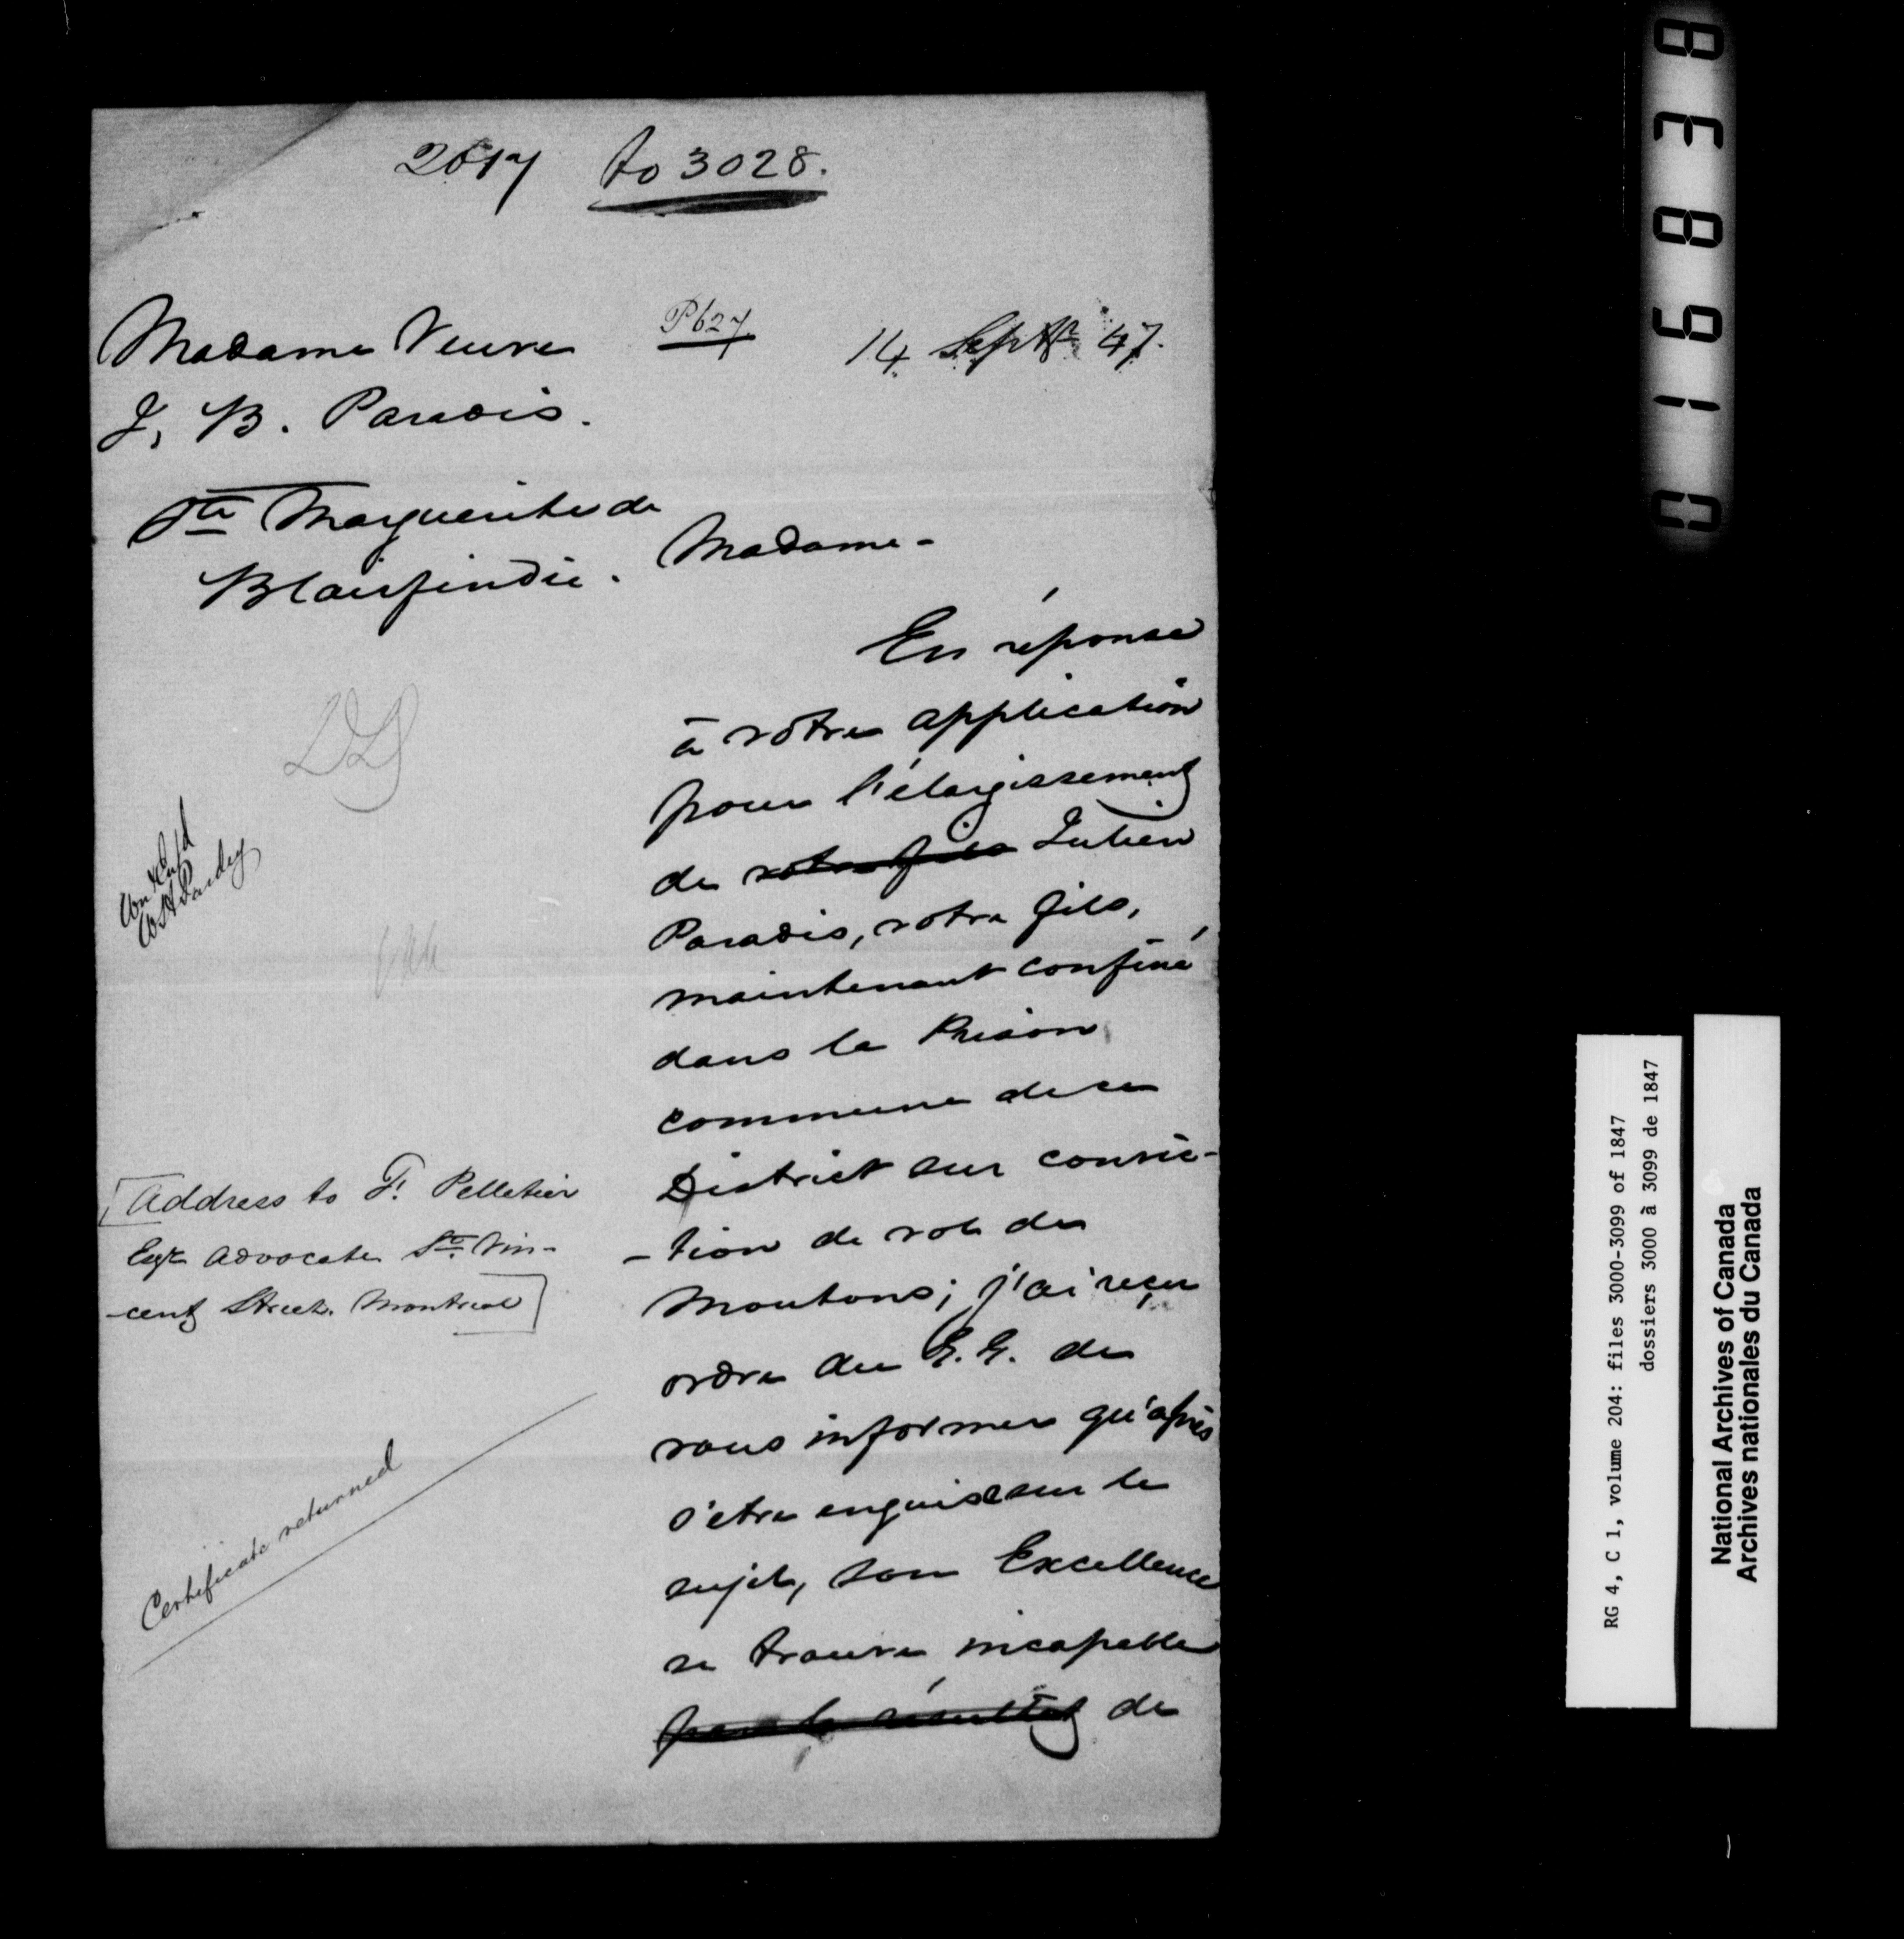 2617 to 3028.
P627
14 Septr 47.
Madame Veuve
J. B. Paradis.
Ste Marguerite de
Blairfindie.
Madame -
En réponse
à votre application
pour l'élargissement
de votre fils Julien
Paradis, votre fils,
maintenant confiné
dans la Prison
commune de ce
District sur convic-
-tion de vol de
Moutons; j'ai reçu
ordre du G.G. de
vous informer qu'après
s'etre enquis sur le
sujet, son Excellence
se trouve incapable
par le résultat de
Address to F. Pelletier
Esqr Advocate St. Vin-
-cent Street. Montreal
Certificate returned
018638
RG 4, C 1, volume 204: files 3000-3099 of 1847
dossiers 3000 à 3099 de 1847
National Archives of Canada
Archives nationales du Canada